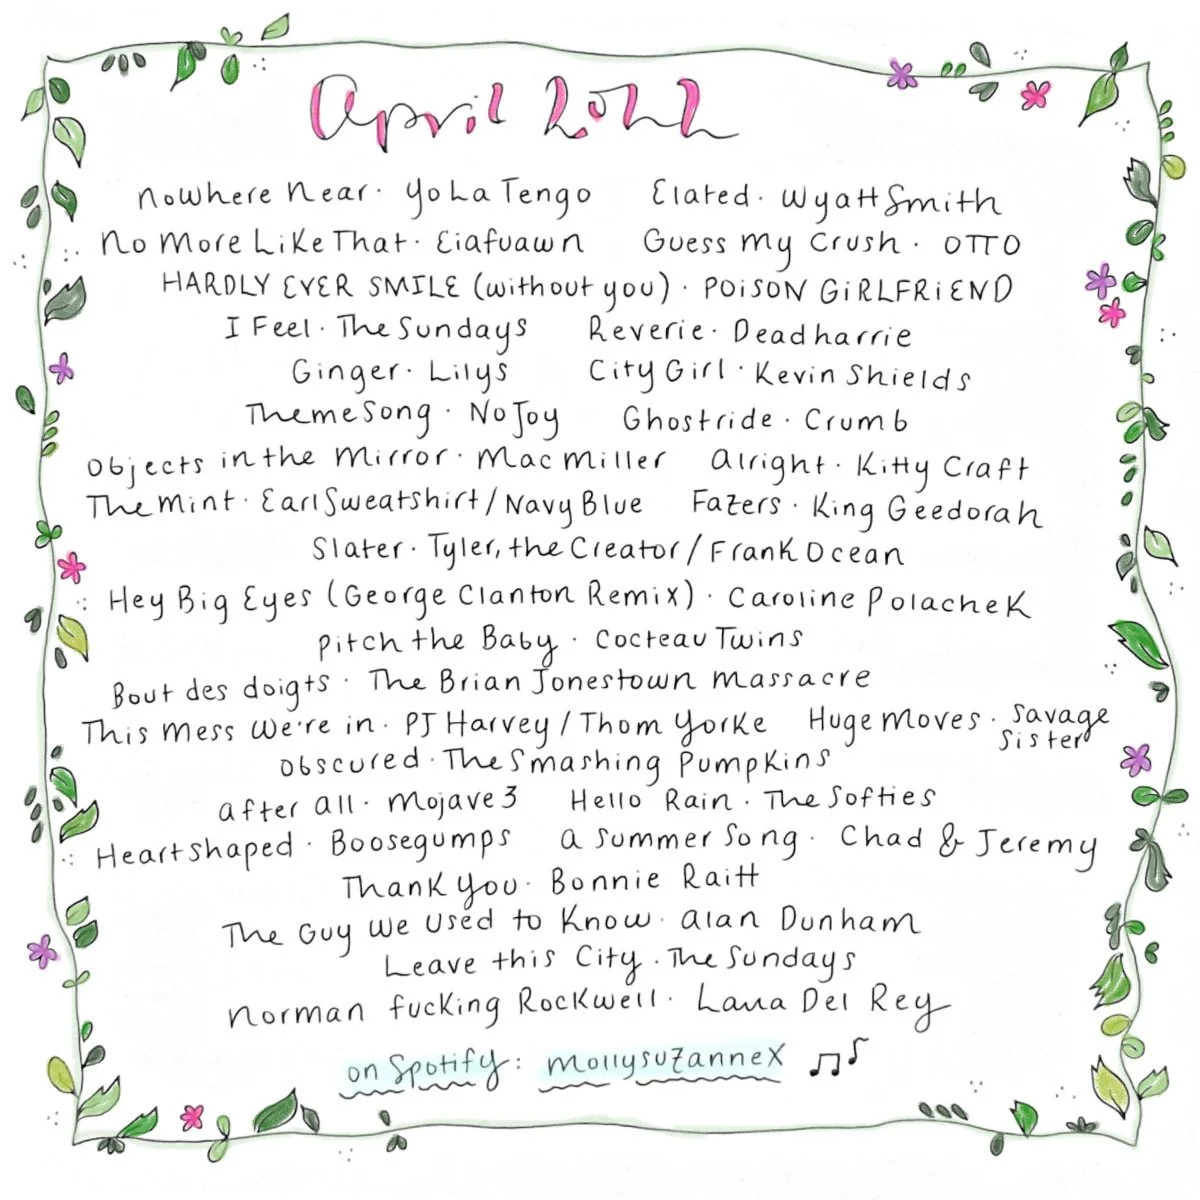 April 2022
Nowhere Near · Yo La Tengo Elated · Wyatt Smith
No More Like That · Eiafuawn Guess My Crush · OTTO
HARDLY EVER SMILE (without you) · POISON GIRLFRIEND
I Feel · The Sundays Reverie · Deadharrie
Ginger · Lilys City Girl · Kevin Shields
Theme Song · No Joy Ghostride · Crumb
Objects in the Mirror · Mac Miller Alright · Kitty Craft
The Mint · Earl Sweatshirt / Navy Blue Fazers · King Geedorah
Slater · Tyler, the Creator / Frank Ocean
Hey Big Eyes (George Clanton Remix) · Caroline Polachek
Pitch the Baby · Cocteau Twins
Bout des doigts · The Brian Jonestown Massacre
This Mess We're in · PJ Harvey / Thom Yorke Huge Moves · Savage Sister
Obscured · The Smashing Pumpkins
After All · Mojave 3 Hello Rain · The Softies
Heartshaped · Boosegumps A Summer Song · Chad & Jeremy
Thank You · Bonnie Raitt
The Guy We Used to Know · Alan Dunham
Leave this City · The Sundays
Norman Fucking Rockwell · Lana Del Rey
on Spotify: mollysuzannex